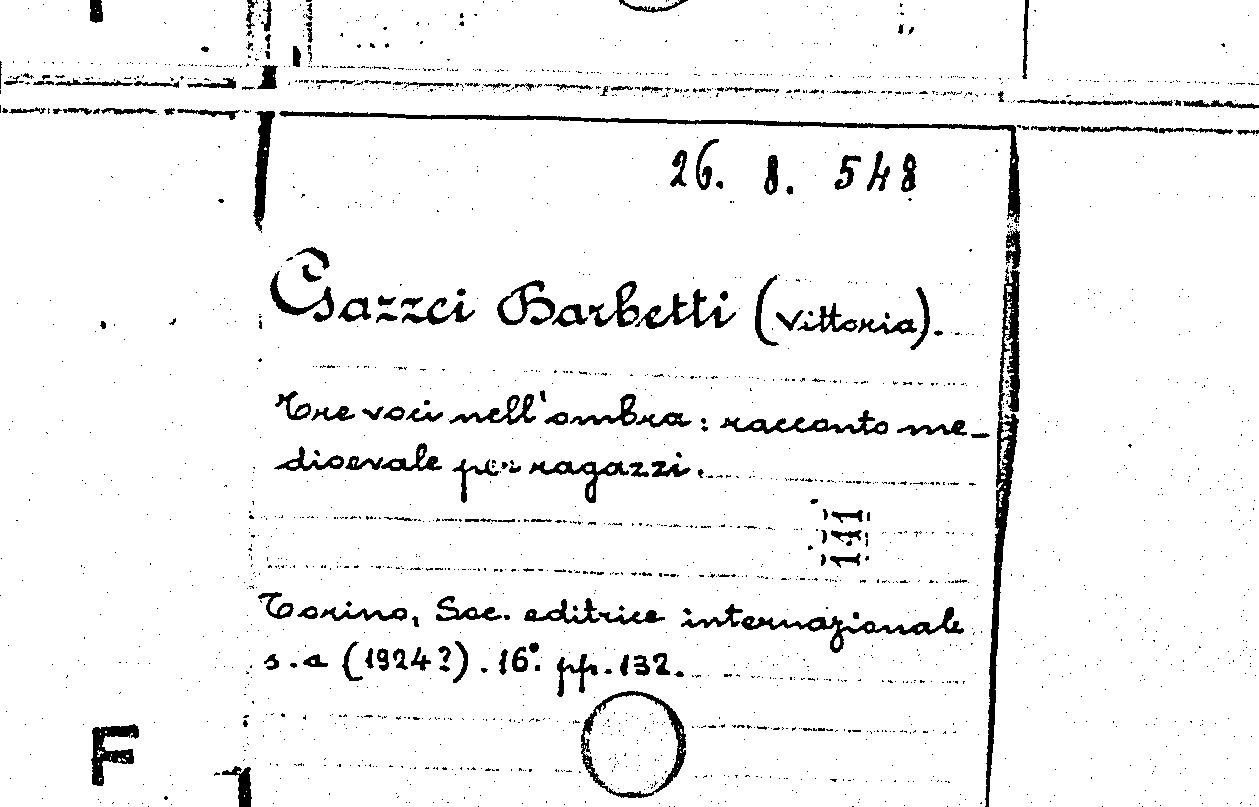 26. 8. 548
Gazzei Barbetti (Vittoria).
Tre voci nell'ombra: racconto me-
dioevale per ragazzi.
141
Torino, Soc. editrice internazionale
s.a (1924?). 16°. pp. 132.
F